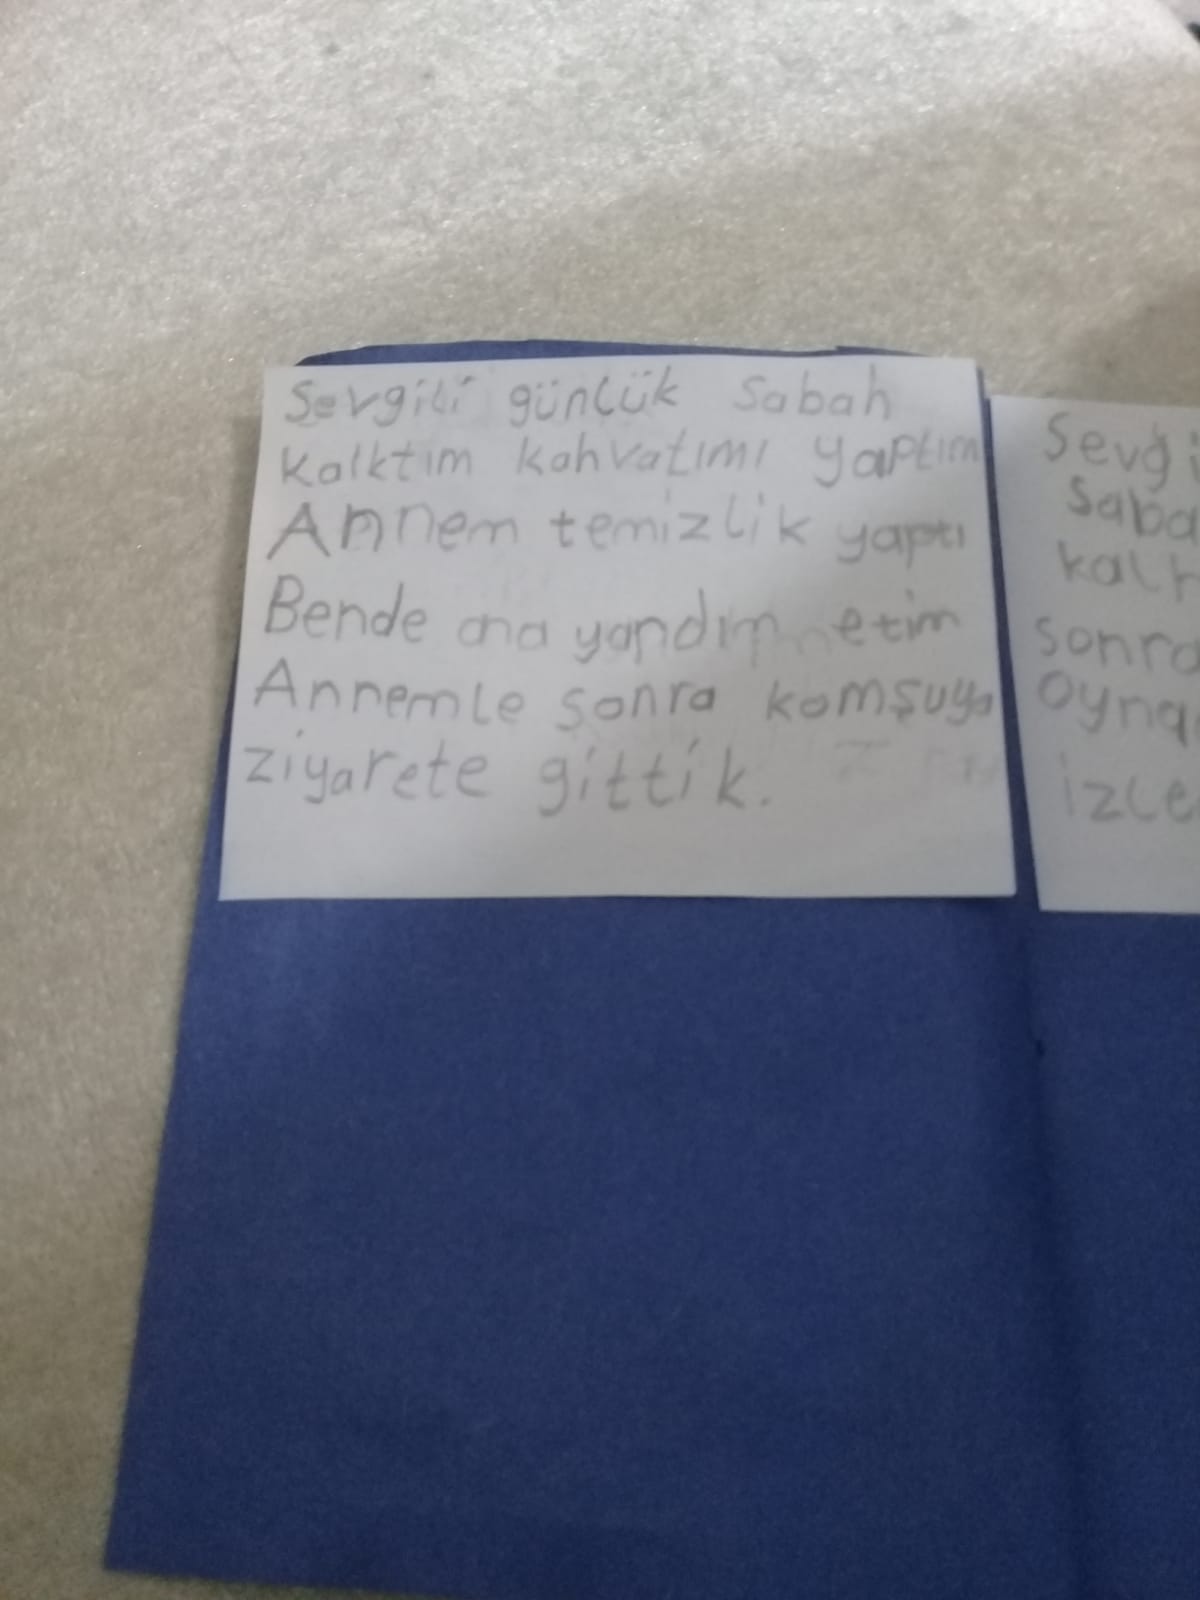 Sevgili günlük Sabah
kalktım kahvatımı yaptım
Annem temizlik yaptı
Bende ona yandım etim
Annemle sonra komşuya
ziyarete gittik.
Sevgi
Saba
kalk
sonra
oyna
izle